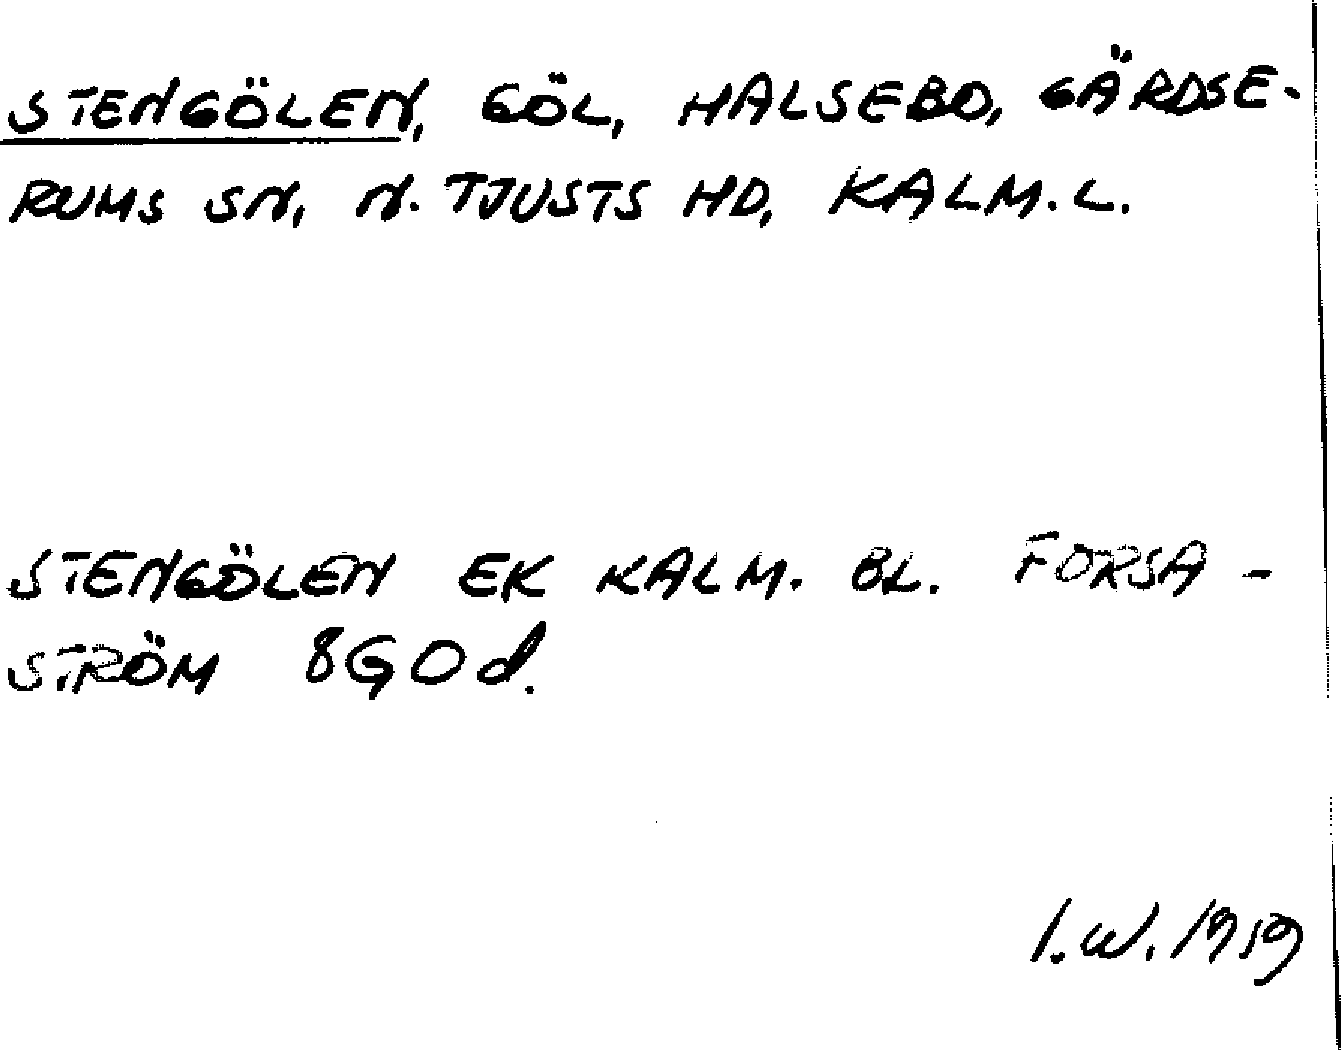 STENGÖLEN, GÖL, HALSEBO, GÄRDSE-
RUMS SN, N. TJUSTS HD, KALM. L.
STENGÖLEN EK KALM. BL. FORSA-
STRÖM 8G0d.
I.W. 1959